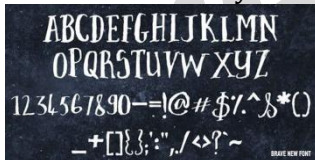 ABCDEFGHIJKLMN
OPQRSTUVWXYZ
1234567890-=!@#$%^&*()
_+[]{};':",./<>?`~
BRAVE NEW FONT